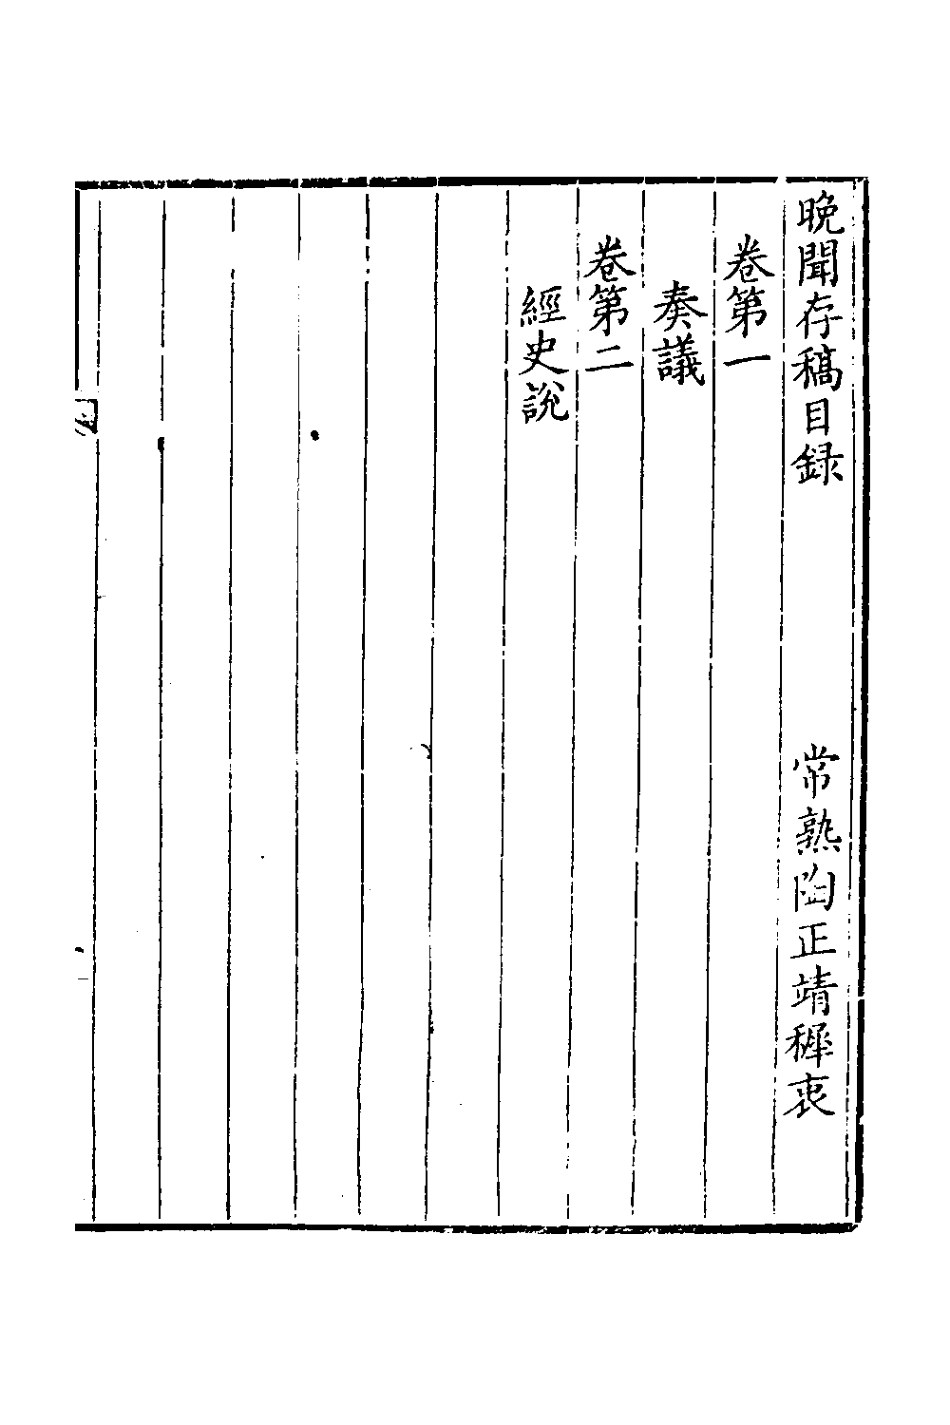 晚聞存稿目録　常熟陶正靖穉衷
卷第一
奏議
卷第二
經史說